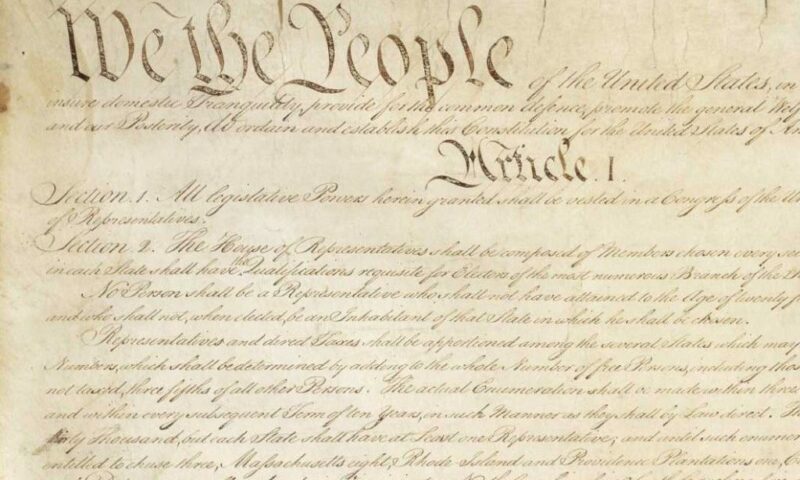 We the People of the United States, in
insure domestic Tranquility, provide for the common defence, promote the general Welf
and our Posterity, do ordain and establish this Constitution for the United States of Am
Article. I.
Section. 1. All legislative Powers herein granted shall be vested in a Congress of the Un
of Representatives.
Section. 2. The House of Representatives shall be composed of Members chosen every sec
in each State shall have the Qualifications requisite for Electors of the most numerous Branch of the
No Person shall be a Representative who shall not have attained to the Age of twenty fi
and who shall not, when elected, be an Inhabitant of that State in which he shall be chosen.
Representatives and direct Taxes shall be apportioned among the several States which may
Numbers, which shall be determined by adding to the whole Number of free Persons, including thos
not taxed, three fifths of all other Persons. The actual Enumeration shall be made within three
and within every subsequent Term of ten Years, in such Manner as they shall by Law direct. Th
thirty Thousand, but each State shall have at Least one Representative; and until such enumer
entitled to chuse three, Massachusetts eight, Rhode Island and Providence Plantations one, C